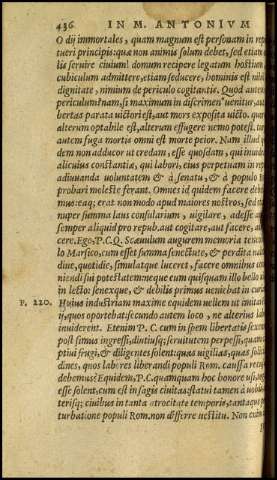 436 IN M. ANTONIVM
O dij immortales, quam magnum est personam in rep
tueri principis: quæ non animis solum debet, sed etiam
lis seruire ciuium! domum recipere legatum hostium
cubiculum admittere, etiam seducere, hominis est nihil
dignitate, nimium de periculo cogitantis. Quod autem
periculum? nam, si maximum in discrimen uenitur, aut
bertas parata uictori est, aut mors exposita uicto. quorum
alterum optabile est, alterum effugere nemo potest. tur
autem fuga mortis omni est morte peior. Nam illud q
dem non adducor ut credam, esse quosdam, qui inuide
alicuius constantiæ, qui labori, eius perpetuam in rep
adiuuanda uoluntatem & à senatu, & à populo R
probari moleste ferant. Omnes id quidem facere debe
mus: eaq; erat non modo apud maiores nostros, sed etiam
nuper summa laus consularium, uigilare, adesse a
semper aliquid pro repub. aut cogitare, aut facere, aut
cere. Ego, P.C. Q. Scæuolam augurem memoria teneo
lo Marsico, cum esset summa senectute, & perdita uale
dine, quotidie, simulatque luceret, facere omnibus con
niendi sui potestatem: neque eum quisquam illo bello
in lecto: senexque, & debilis primus ueniebat in curiam
P. 220. Huius industriam maxime equidem uellem ut imitar
ij, quos oportebat: secundo autem loco, ne alterius lab
inuiderent. Etenim P. C. cum in spem libertatis sexen
post simus ingressi, diutiusq; seruitutem perpessi, quam
ptiui frugi, & diligentes solent: quas uigilias, quas solici
dines, quos labores liberandi populi Rom. caussa recus
debemus? Equidem, P.C. quamquam hoc honore usi, tog
esse solent, cum est in sagis ciuitas: statui tamen à uobis
terisq; ciuibus in tanta atrocitate temporis, tantaque
turbatione populi Rom. non differre uestitu. Non enim